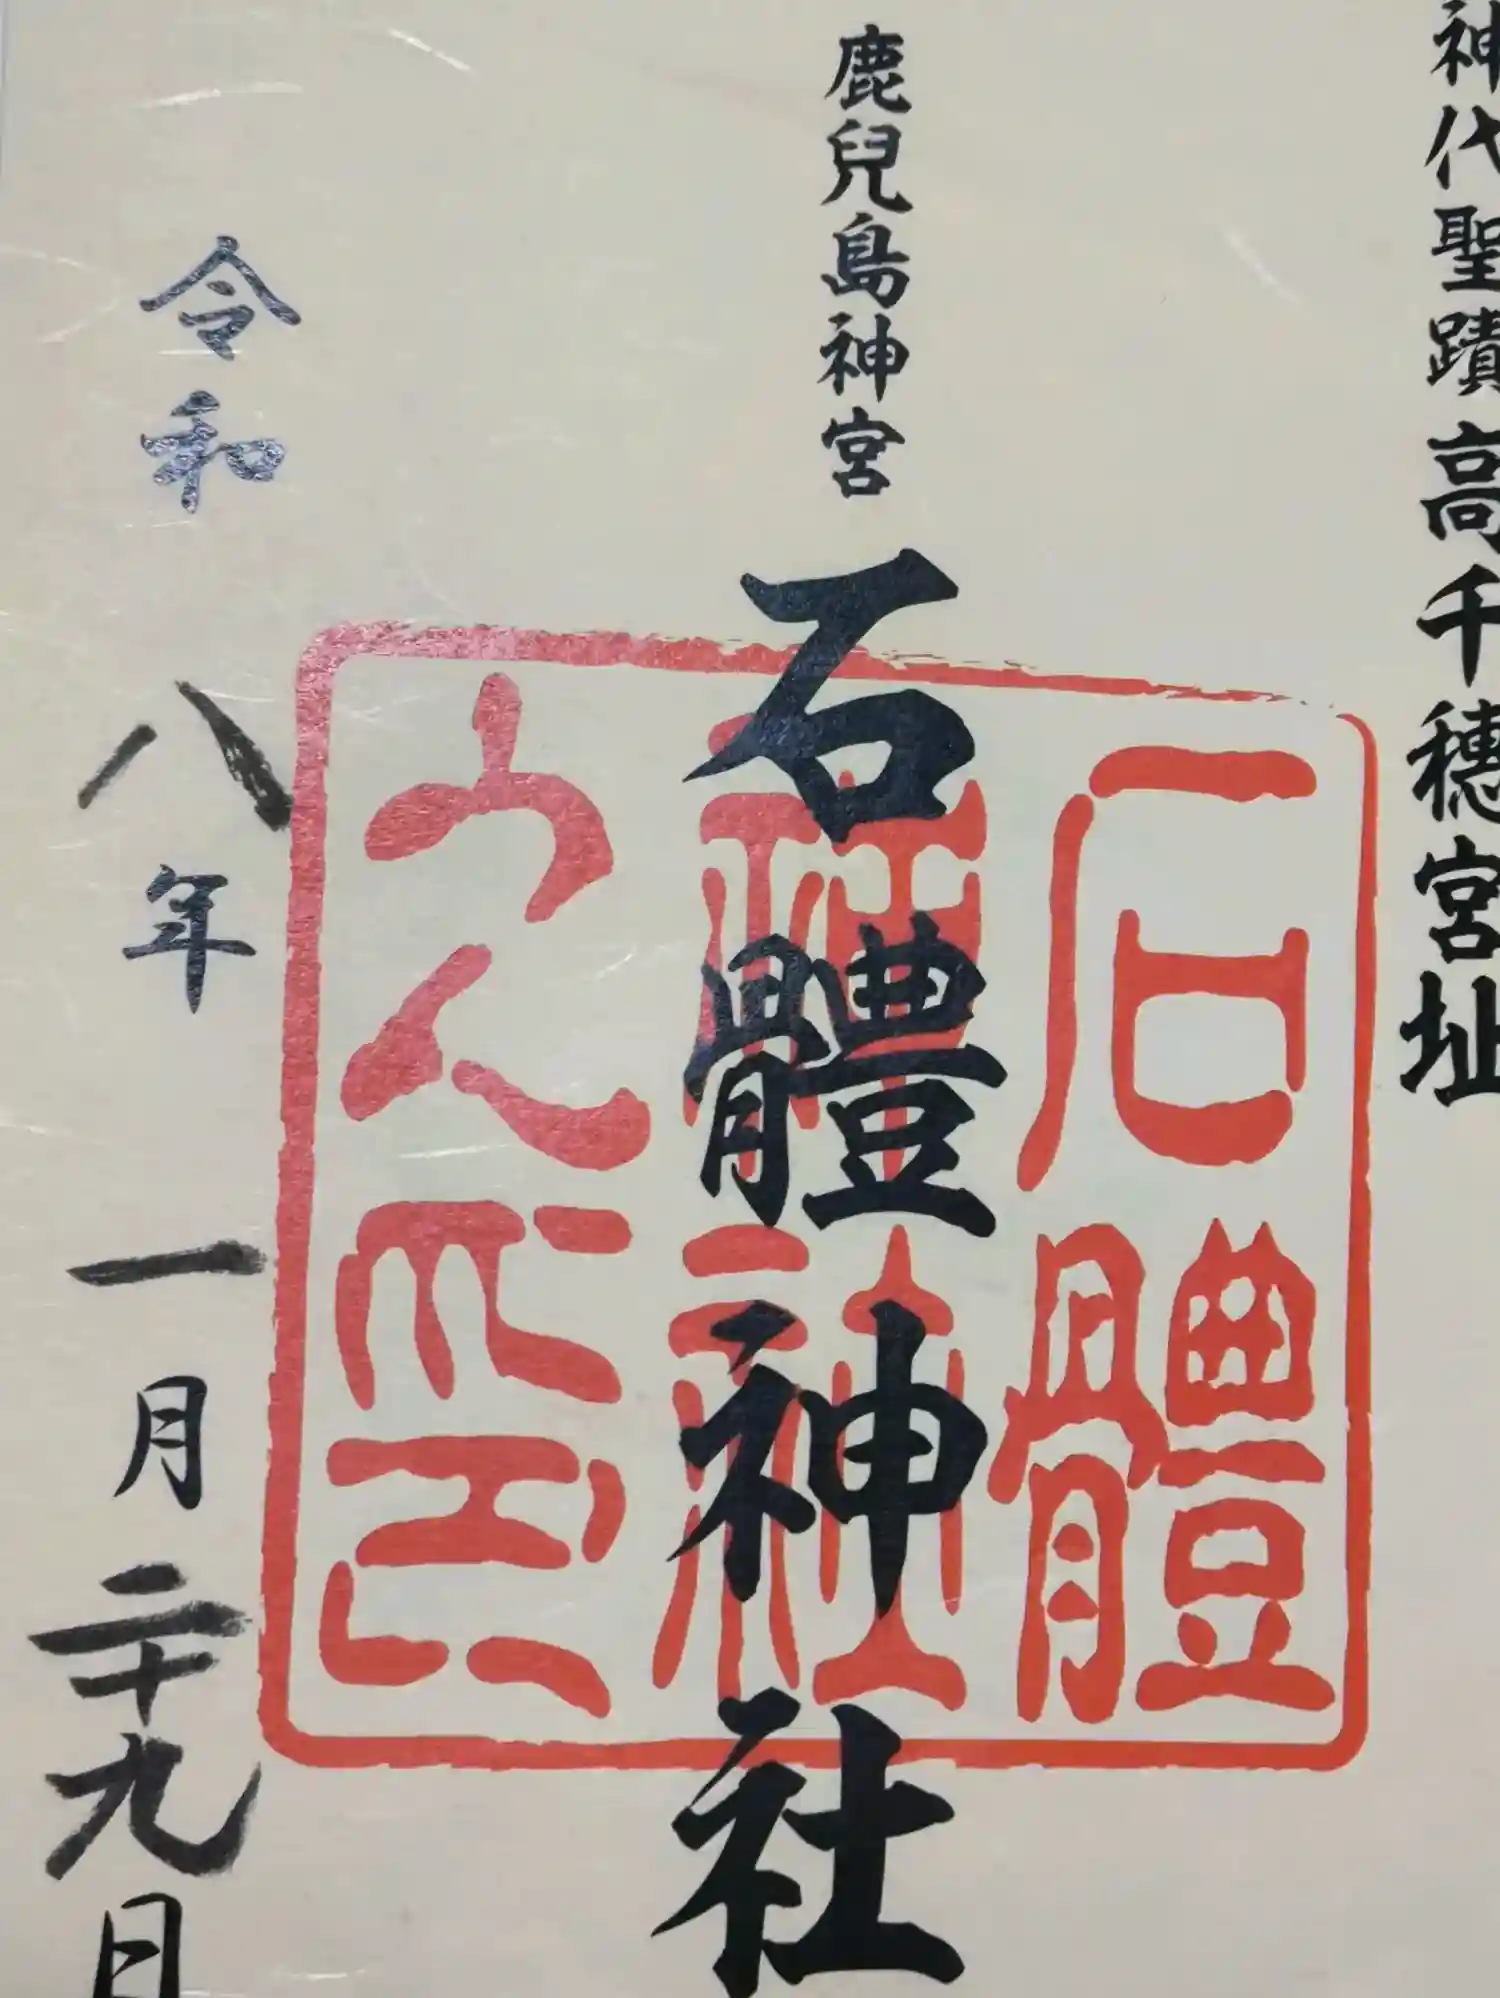 神代聖蹟高千穂宮址
鹿兒島神宮
石體神社
令和八年一月二十九日
石體
神社
之印